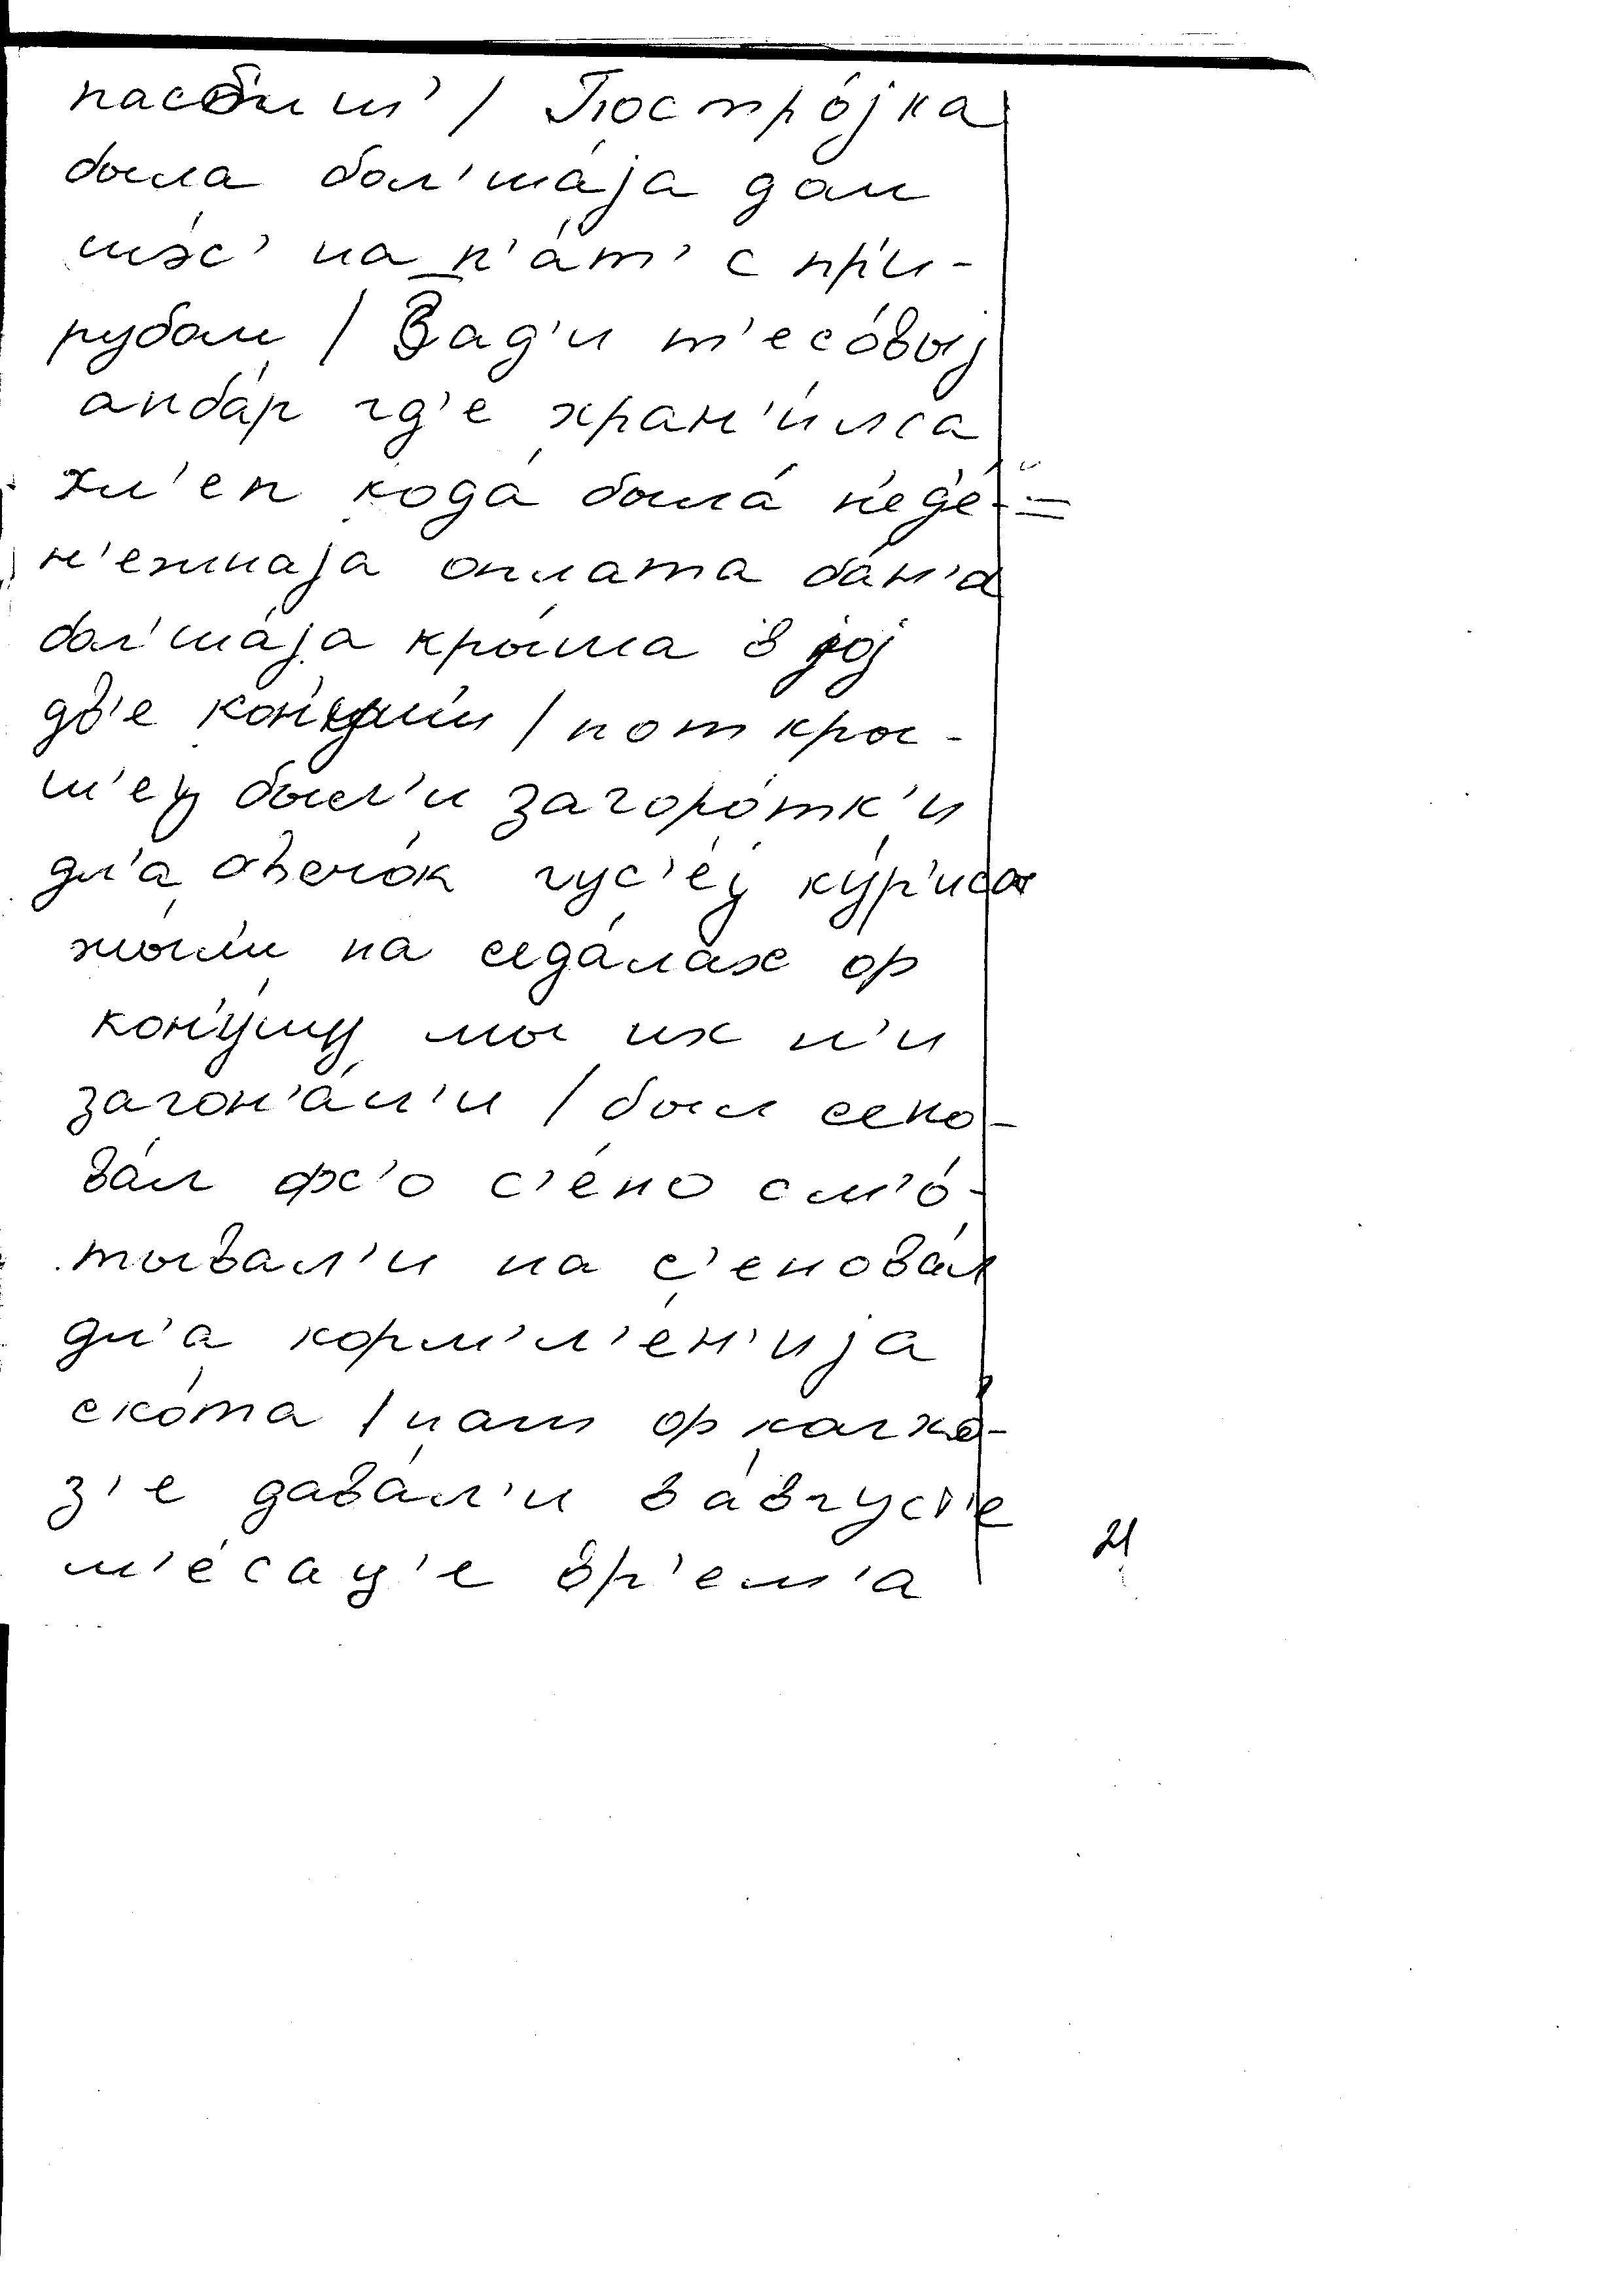 пасбиш' / Пострójка
была бол'шája дом
шэс' на п'áт' с пр'и-
рубом / Зад'и т'есóвыj
анбáр гд'е хран'и́лса
хл'еп кодá былá н'ед'é-
н'ежнаjа оплата бáн'а
бол'шája кры́ша в jоj
дв'е кон'ушн'и / пот кры-
ш'еу̯ был'и загорóтк'и
дл'а овечóк гус'éу̯ кýр'иса
жыл'и на седáлах ф
кон'ýшу мы их н'и
загон'áл'и / был сено-
вáл фс'о с'éно см'ó-
тывал'и на с'еновáл
дл'а корм'л'éн'иjа
скóта / нам ф калхо-
з'е давáл'и в áвгуст'е
м'éсац'е вр'ем'а
21